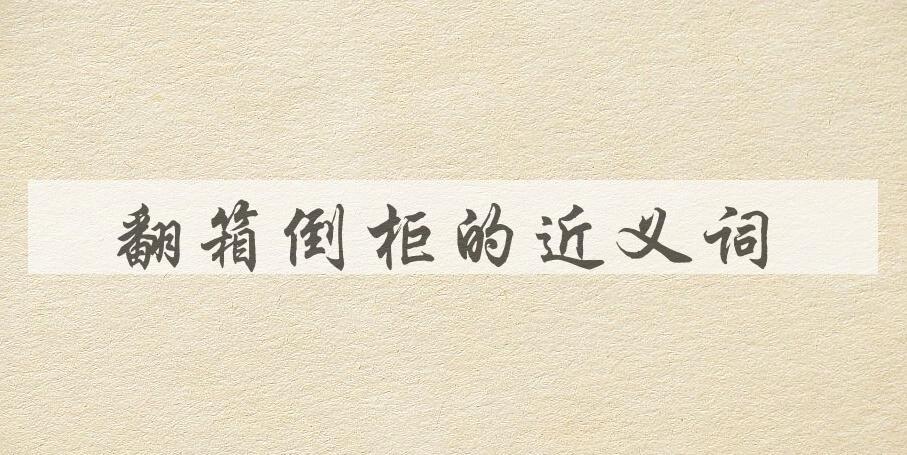 翻箱倒柜的近义词